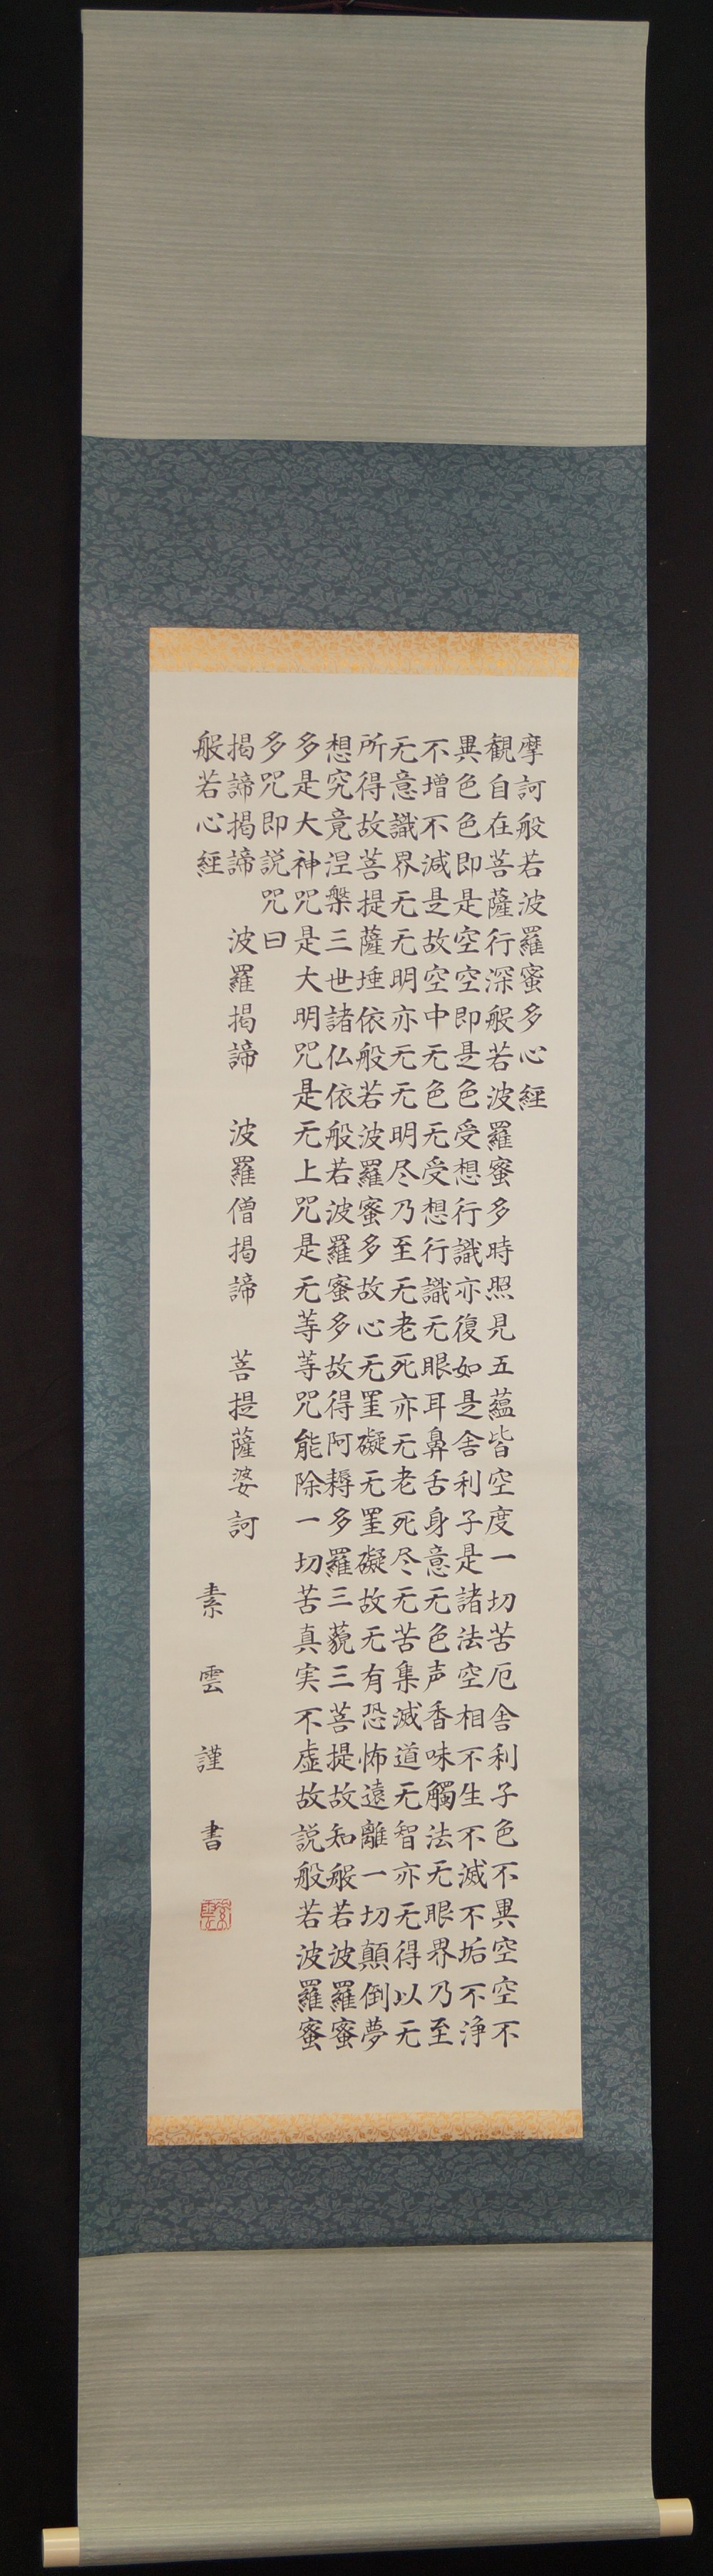 摩訶般若波羅蜜多心經
観自在菩薩行深般若波羅蜜多時照見五蘊皆空度一切苦厄舎利子色不異空空不
異色色即是空空即是色受想行識亦復如是舎利子是諸法空相不生不滅不垢不浄
不增不減是故空中无色无受想行識无眼耳鼻舌身意无色声香味觸法无眼界乃至
无意識界无无明亦无无明尽乃至无老死亦无老死尽无苦集滅道无智亦无得以无
所得故菩提薩埵依般若波羅蜜多故心无罣礙无罣礙故无有恐怖遠離一切顛倒夢
想究竟涅槃三世諸仏依般若波羅蜜多故得阿耨多羅三藐三菩提故知般若波羅蜜
多是大神咒是大明咒是无上咒是无等等咒能除一切苦真実不虚故説般若波羅蜜
多咒即説咒曰
揭諦揭諦 波羅揭諦 波羅僧揭諦 菩提薩婆訶
般若心經 素雲謹書
素雲